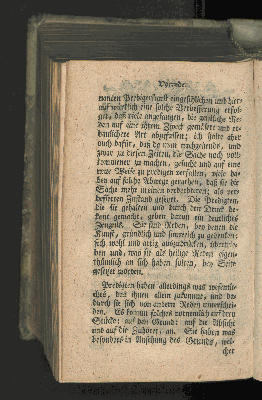 Vorrede.
nanten Predigerkunst eingeschlichen und hier-
auf würklich eine solche Verbesserung erfol-
get, daß viele angefangen, die geistliche Re-
den auf eine ihrem Zweck gemässere und er-
baulichere Art abzufassen; ich halte aber
auch dafür, daß da man nachgehends, und
zwar zu diesen Zeiten, die Sache noch voll-
kommener zu machen, gesucht und auf eine
neue Weise zu predigen verfallen, viele da-
bey auf solche Abwege gerathen, daß sie die
Sache mehr in einen verderbteren; als ver-
besserten Zustand gesetzet. Die Predigten,
die sie gehalten und durch den Druck be-
kant gemacht, geben davon ein deutliches
Zeugnis. Sie sind Reden, bey denen die
Kunst, gründlich und sinnreich zu gedenken;
sich wohl und artig auszudrücken, übertrie-
ben und, was sie als heilige Reden eigen-
thümlich an sich haben solten, bey Seite
gesetzet worden.
Predigten haben allerdings was wesentli-
ches, das ihnen allein zukommt, und da-
durch sie sich von andern Reden unterschei-
den. Es kommt solches vornemlich auf drey
Stücke: auf den Grund: auf die Absicht
und auf die Zuhörer, an. Sie haben was
besonders in Ansehung des Grunds, wel-
cher